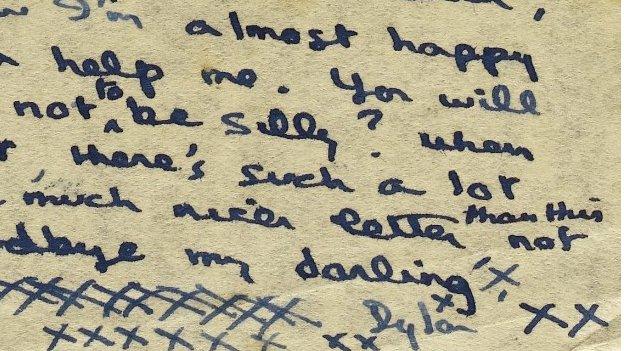 I'm almost happy
help me. You will
not to be silly? when
there's such a lot
much nicer letter than this not
my darling X
XXXXXXXXXX Dylan X X X
X X X X X X X X X